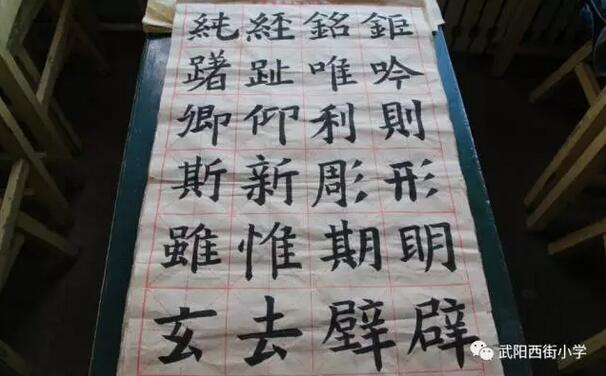 純經銘鉅
躇趾唯吟
卿仰利則
斯新彫形
雖惟期明
玄去壁辟
武阳西街小学